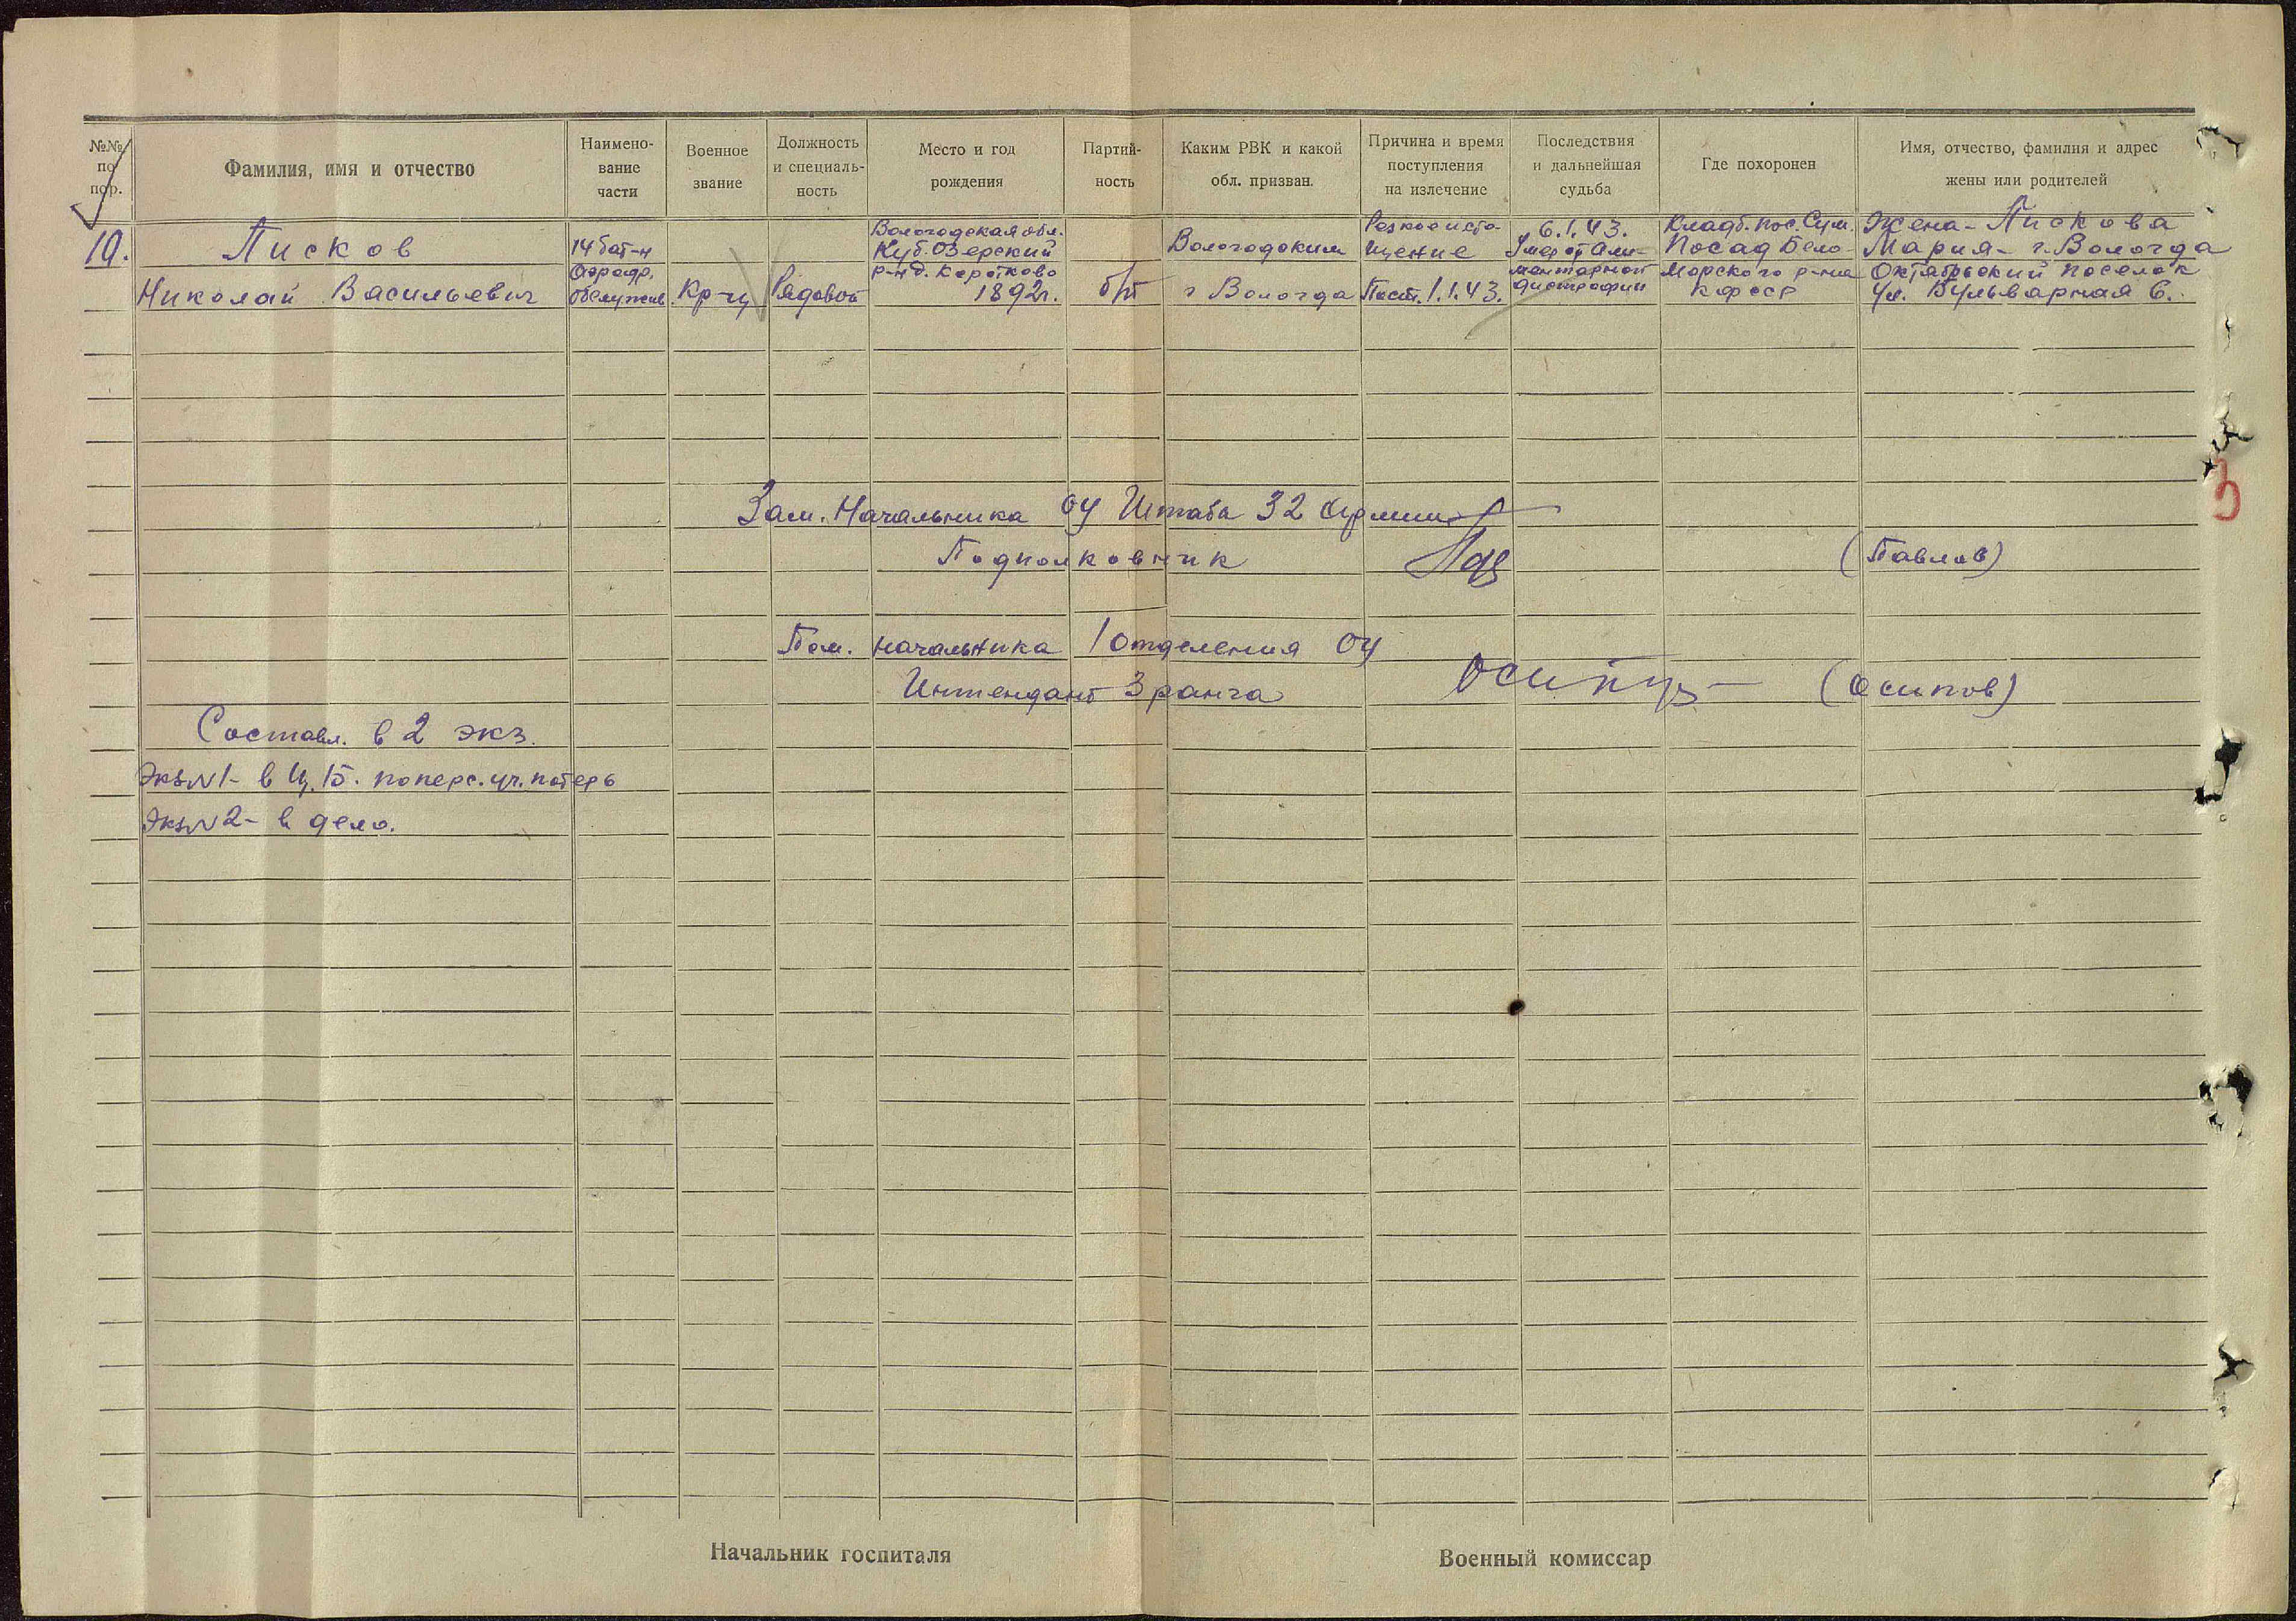 №№ по пор.
Фамилия, имя и отчество
Наимено-
вание
части
Военное
звание
Должность
и специаль-
ность
Место и год
рождения
Партий-
ность
Каким РВК и какой
обл. призван.
Причина и время
поступления
на излечение
Последствия
и дальнейшая
судьба
Где похоронен
Имя, отчество, фамилия и адрес
жены или родителей
10.
Писков
Николай Васильевич
14 бат-н
Аэродр.
обслужив.
Кр-ц
Рядовой
Вологодская обл.
Куб.Озерский
р-н д. Коротково
1892г.
б/п
Вологодским
г Вологда
Резкое исто-
щение
Пост. 1.1.43.
6.1.43.
Умер от Али-
ментарной
дистрофии
Кладб. пос. Сум.
Посад Бело-
морского р-на
КФССР
Жена - Пискова
Мария - г. Вологда
Октябрьский поселок
Ул. Бульварная 6.
3
Зам. Начальника ОУ Штаба 32 Армии
Подполковник
(Павлов)
Пом. начальника 1 отделения ОУ
Интендант 3 ранга
Осипов
(Осипов)
Составл. в 2 экз.
Экз N 1 - в Ц.Б. поперс. уч. потерь
Экз N 2 - в дело.
Начальник госпиталя
Военный комиссар